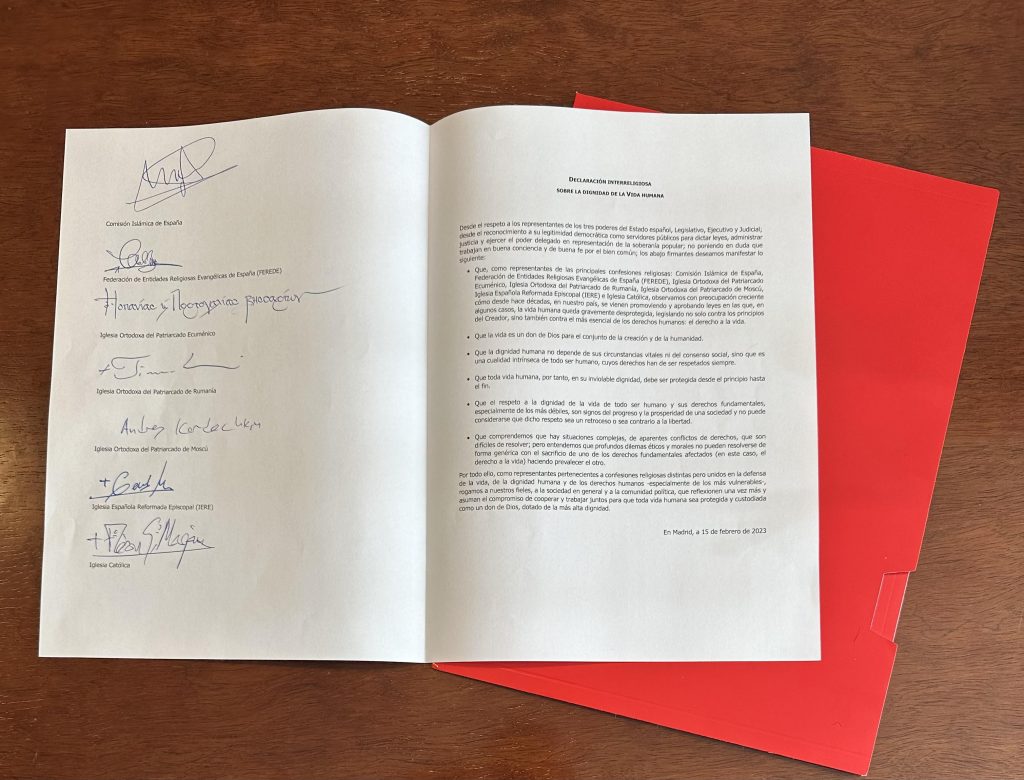 Comisión Islámica de España
Federación de Entidades Religiosas Evangélicas de España (FEREDE)
Iglesia Ortodoxa del Patriarcado Ecuménico
Iglesia Ortodoxa del Patriarcado de Rumanía
Iglesia Ortodoxa del Patriarcado de Moscú
Iglesia Española Reformada Episcopal (IERE)
Iglesia Católica
DECLARACIÓN INTERRELIGIOSA
SOBRE LA DIGNIDAD DE LA VIDA HUMANA
Desde el respeto a los representantes de los tres poderes del Estado español, Legislativo, Ejecutivo y Judicial;
desde el reconocimiento a su legitimidad democrática como servidores públicos para dictar leyes, administrar
justicia y ejercer el poder delegado en representación de la soberanía popular; no poniendo en duda que
trabajan en buena conciencia y de buena fe por el bien común; los abajo firmantes deseamos manifestar lo
siguiente:
• Que, como representantes de las principales confesiones religiosas: Comisión Islámica de España,
Federación de Entidades Religiosas Evangélicas de España (FEREDE), Iglesia Ortodoxa del Patriarcado
Ecuménico, Iglesia Ortodoxa del Patriarcado de Rumanía, Iglesia Ortodoxa del Patriarcado de Moscú,
Iglesia Española Reformada Episcopal (IERE) e Iglesia Católica, observamos con preocupación creciente
cómo desde hace décadas, en nuestro país, se vienen promoviendo y aprobando leyes en las que, en
algunos casos, la vida humana queda gravemente desprotegida, legislando no solo contra los principios
del Creador, sino también contra el más esencial de los derechos humanos: el derecho a la vida.
• Que la vida es un don de Dios para el conjunto de la creación y de la humanidad.
• Que la dignidad humana no depende de sus circunstancias vitales ni del consenso social, sino que es
una cualidad intrínseca de todo ser humano, cuyos derechos han de ser respetados siempre.
• Que toda vida humana, por tanto, en su inviolable dignidad, debe ser protegida desde el principio hasta
el fin.
• Que el respeto a la dignidad de la vida de todo ser humano y sus derechos fundamentales,
especialmente de los más débiles, son signos del progreso y la prosperidad de una sociedad y no puede
considerarse que dicho respeto sea un retroceso o sea contrario a la libertad.
• Que comprendemos que hay situaciones complejas, de aparentes conflictos de derechos, que son
difíciles de resolver; pero entendemos que profundos dilemas éticos y morales no pueden resolverse de
forma genérica con el sacrificio de uno de los derechos fundamentales afectados (en este caso, el
derecho a la vida) haciendo prevalecer el otro.
Por todo ello, como representantes pertenecientes a confesiones religiosas distintas pero unidos en la defensa
de la vida, de la dignidad humana y de los derechos humanos -especialmente de los más vulnerables-,
rogamos a nuestros fieles, a la sociedad en general y a la comunidad política, que reflexionen una vez más y
asuman el compromiso de cooperar y trabajar juntos para que toda vida humana sea protegida y custodiada
como un don de Dios, dotado de la más alta dignidad.
En Madrid, a 15 de febrero de 2023